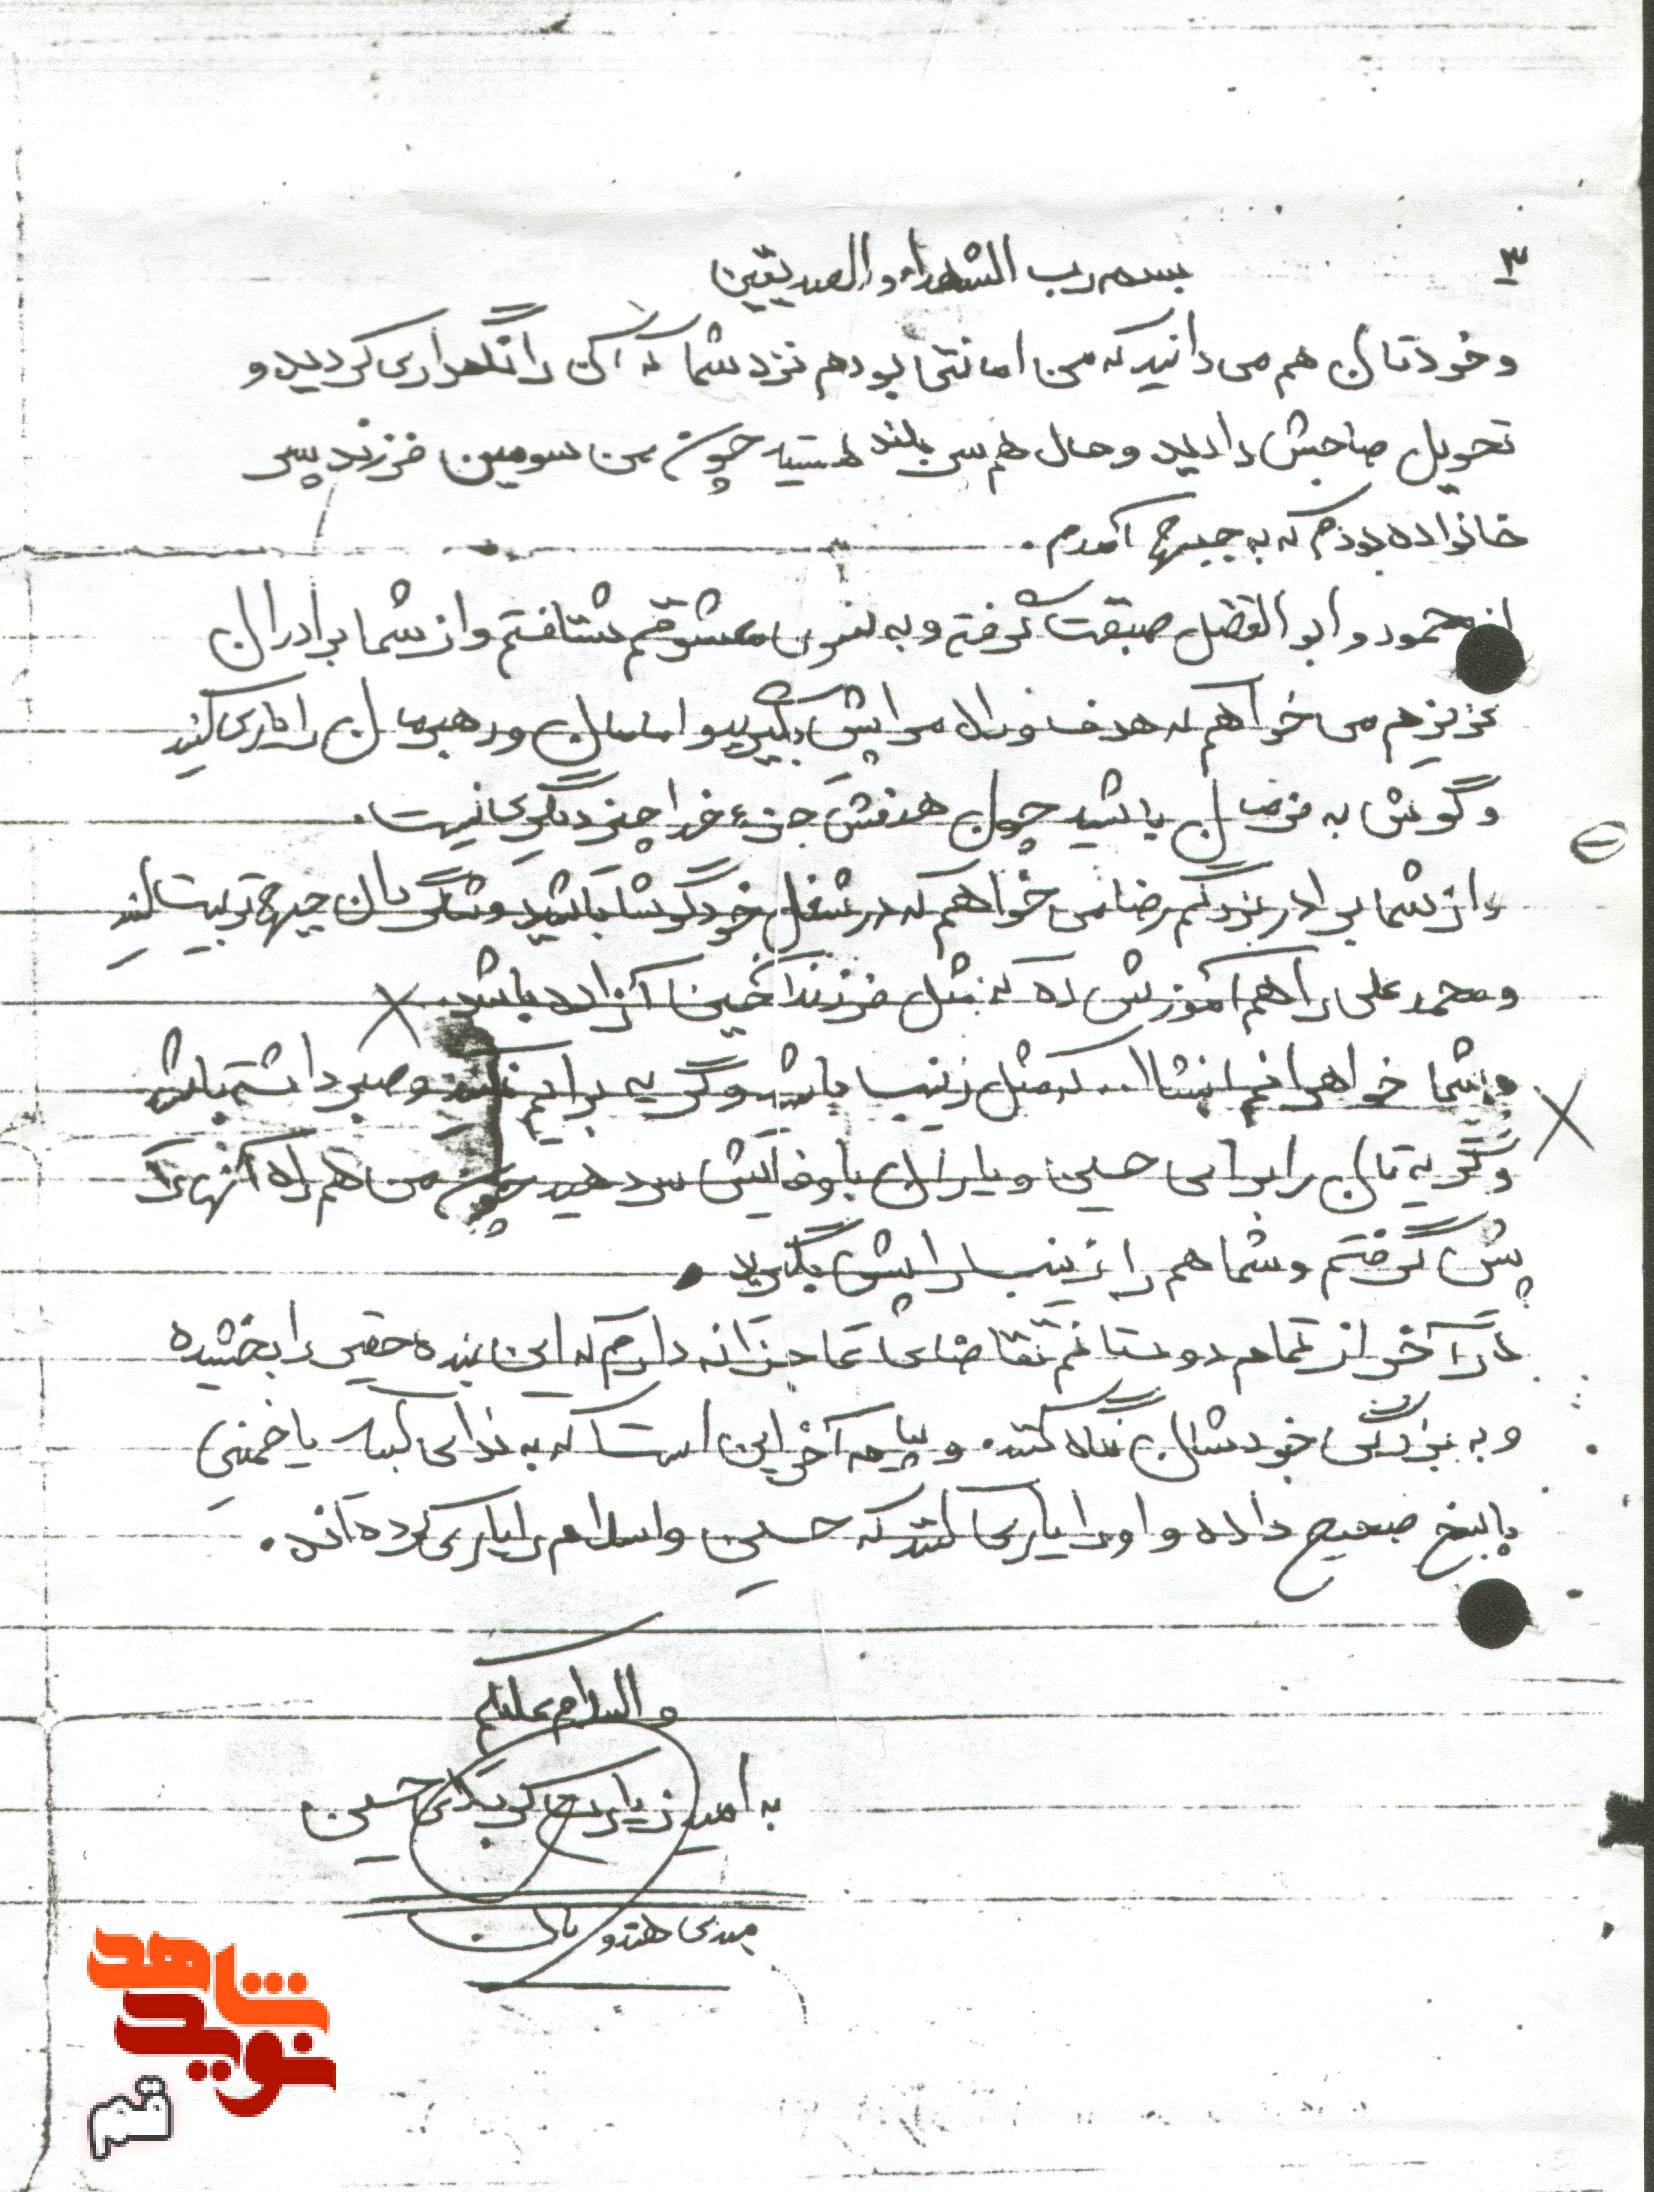 ۳
بسم رب الشهداء و الصدیقین
و خودتان هم می دانید که من امانتی بودم نزد شما که آن را نگهداری کردید و
تحویل صاحبش دادید و حال هم سر بلند هستید چون من سومین فرزند پسر
خانواده بودم که به جبهه آمدم.
از محمود و ابوالفضل صبقت گرفتم و به سوی معشوقم شتافتم و از شما برادران
عزیزم می خواهم که هدف و راه مرا پیش بگیرید و امامان و رهبرمان را یاری کنید
و گوش به فرمان باشید چون هدفش جزء خدا چیز دیگری نیست.
و از شما برادر بزرگم رضا می خواهم که در شغل خود کوشا باشید و شاگردان جبهه تربیت کنید
و محمد علی را هم آموزش ده که مثل فرزندا خمین آزاده باشد.
و شما خواهرانم انشاا... که مثل زینب باشید و گریه برایم نکنید و صبر داشته باشد
و گریه تان را برای حسین و یاران با وفایش سر دهید چون من هم راه آنها را
پیش گرفتم و شما هم راه زینب را پیش بگیرید.
در آخر از تمام دوستانم تقاضای عاجزانه دارم که این بنده حقیر را بخشیده
و به بزرگی خودشان نگاه کنند. و پیام آخر این است که به ندای لبیک یا خمینی
پاسخ صحیح داده و او را یاری کنند که حسین و اسلام را یاری کرده اند.
والسلام علیکم
به امید زیارت کربلای حسین
مهدی هندویان
شاهد
نوید
قم